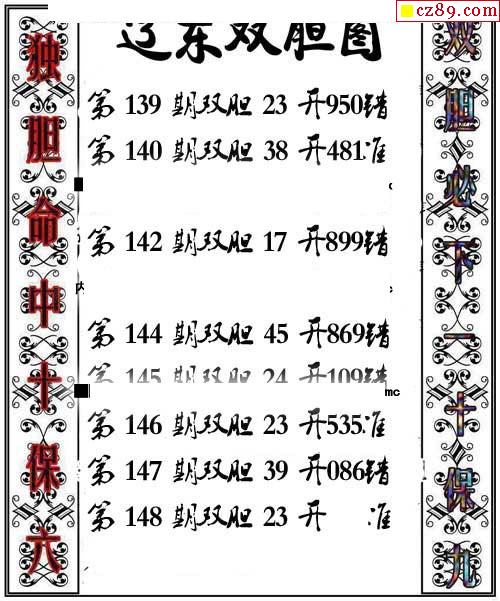 cz89.com
辽东双胆图
第 139 期双胆 23 开950错
第 140 期双胆 38 开481准
第 142 期双胆 17 开899错
第 144 期双胆 45 开869错
第 145 期双胆 24 开109错
mc
第 146 期双胆 23 开535准
第 147 期双胆 39 开086错
第 148 期双胆 23 开 准
独胆命中十保六
双胆必下一十保九